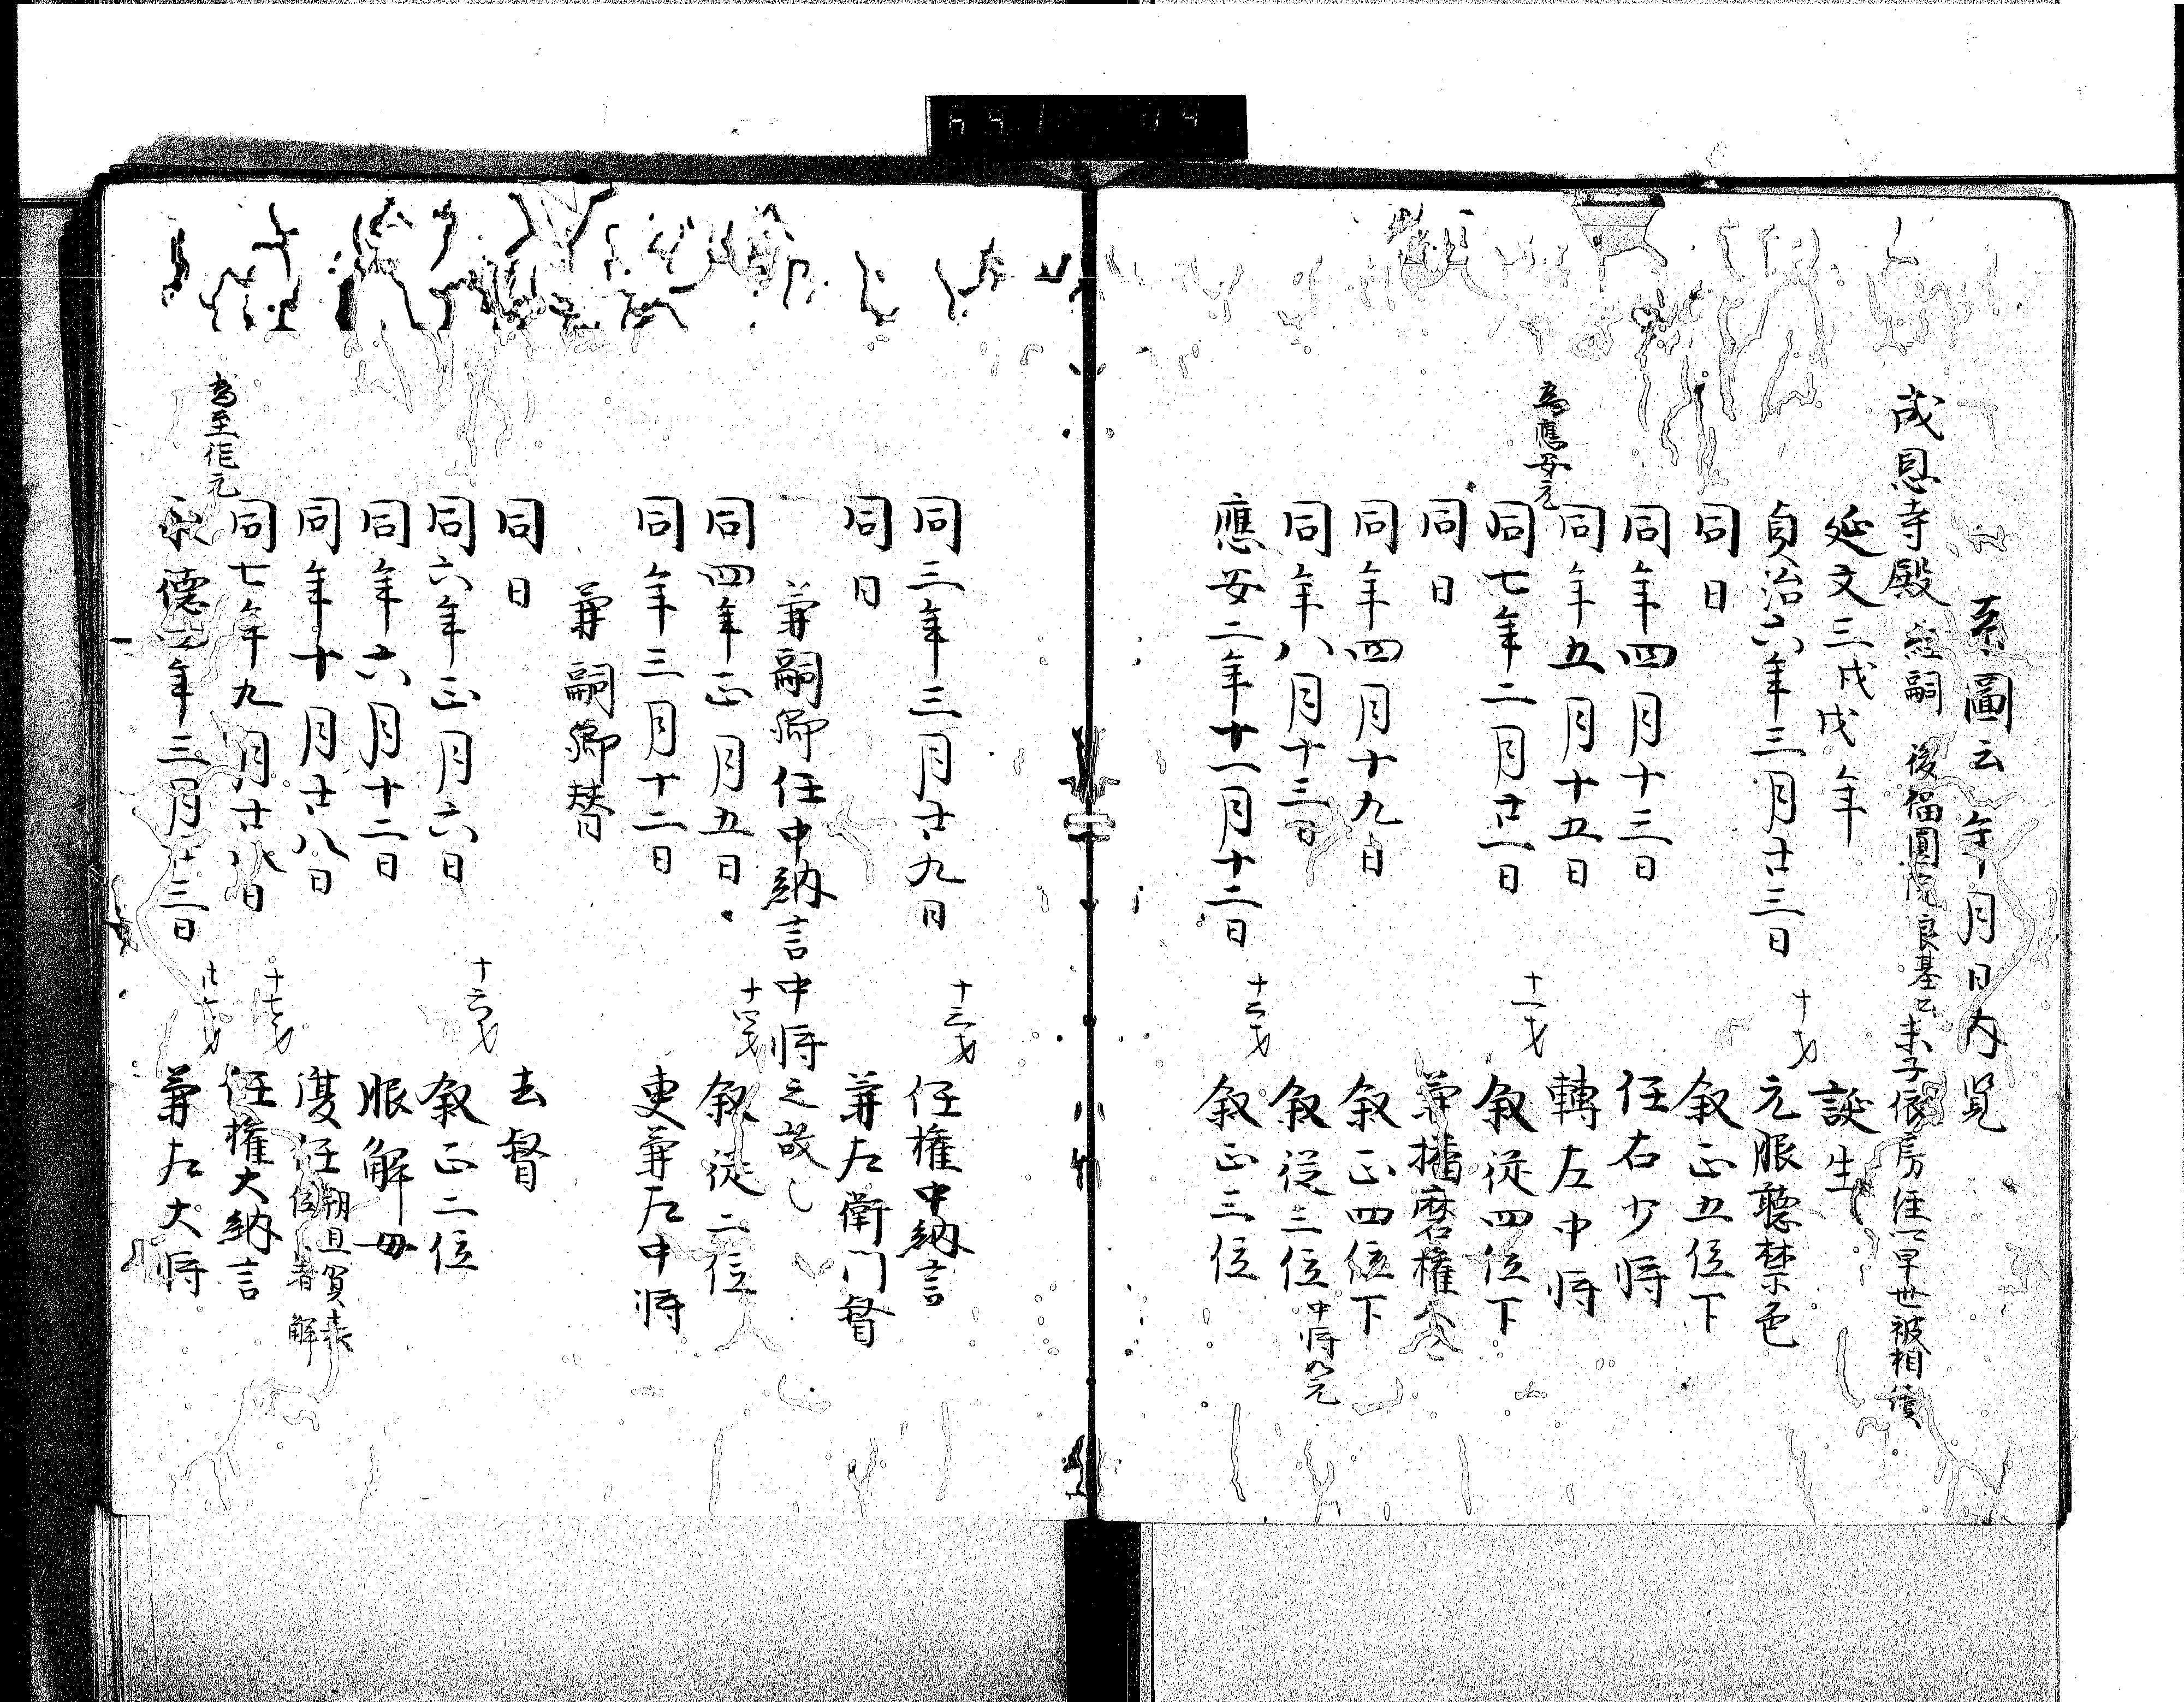 系圖云年月日内覧
成恩寺殿 経嗣 後福圓院良基公末子依房経早世被相續
延文三戊戌年 誕生
貞治六年三月廿三日 十才 元服聴禁色
同日 叙正五位下
同年四月十三日 任右少将
同年五月十五日 轉左中将
為應安元
同七年二月廿一日 十一才 叙従四位下
同日 兼播磨権介
同年四月十九日 叙正四位下
同年八月十三日 叙従三位 中将如元
應安二年十一月十二日 十二才 叙正三位
同三年三月廿九日 十三才 任権中納言
同日 兼左衛門督
兼嗣卿任中納言中将之故也
同四年正月五日 十四才 叙従二位
同年三月十二日 更兼左中将
兼嗣卿替
同日 去督
同六年正月六日 十六才 叙正二位
同年六月十二日 服解母
同年十月廿八日 復任 朔旦賀表 者 解
為至徳元
同七年九月廿八日 十七才 任権大納言
永徳四年三月廿三日 廿七才 兼左大将